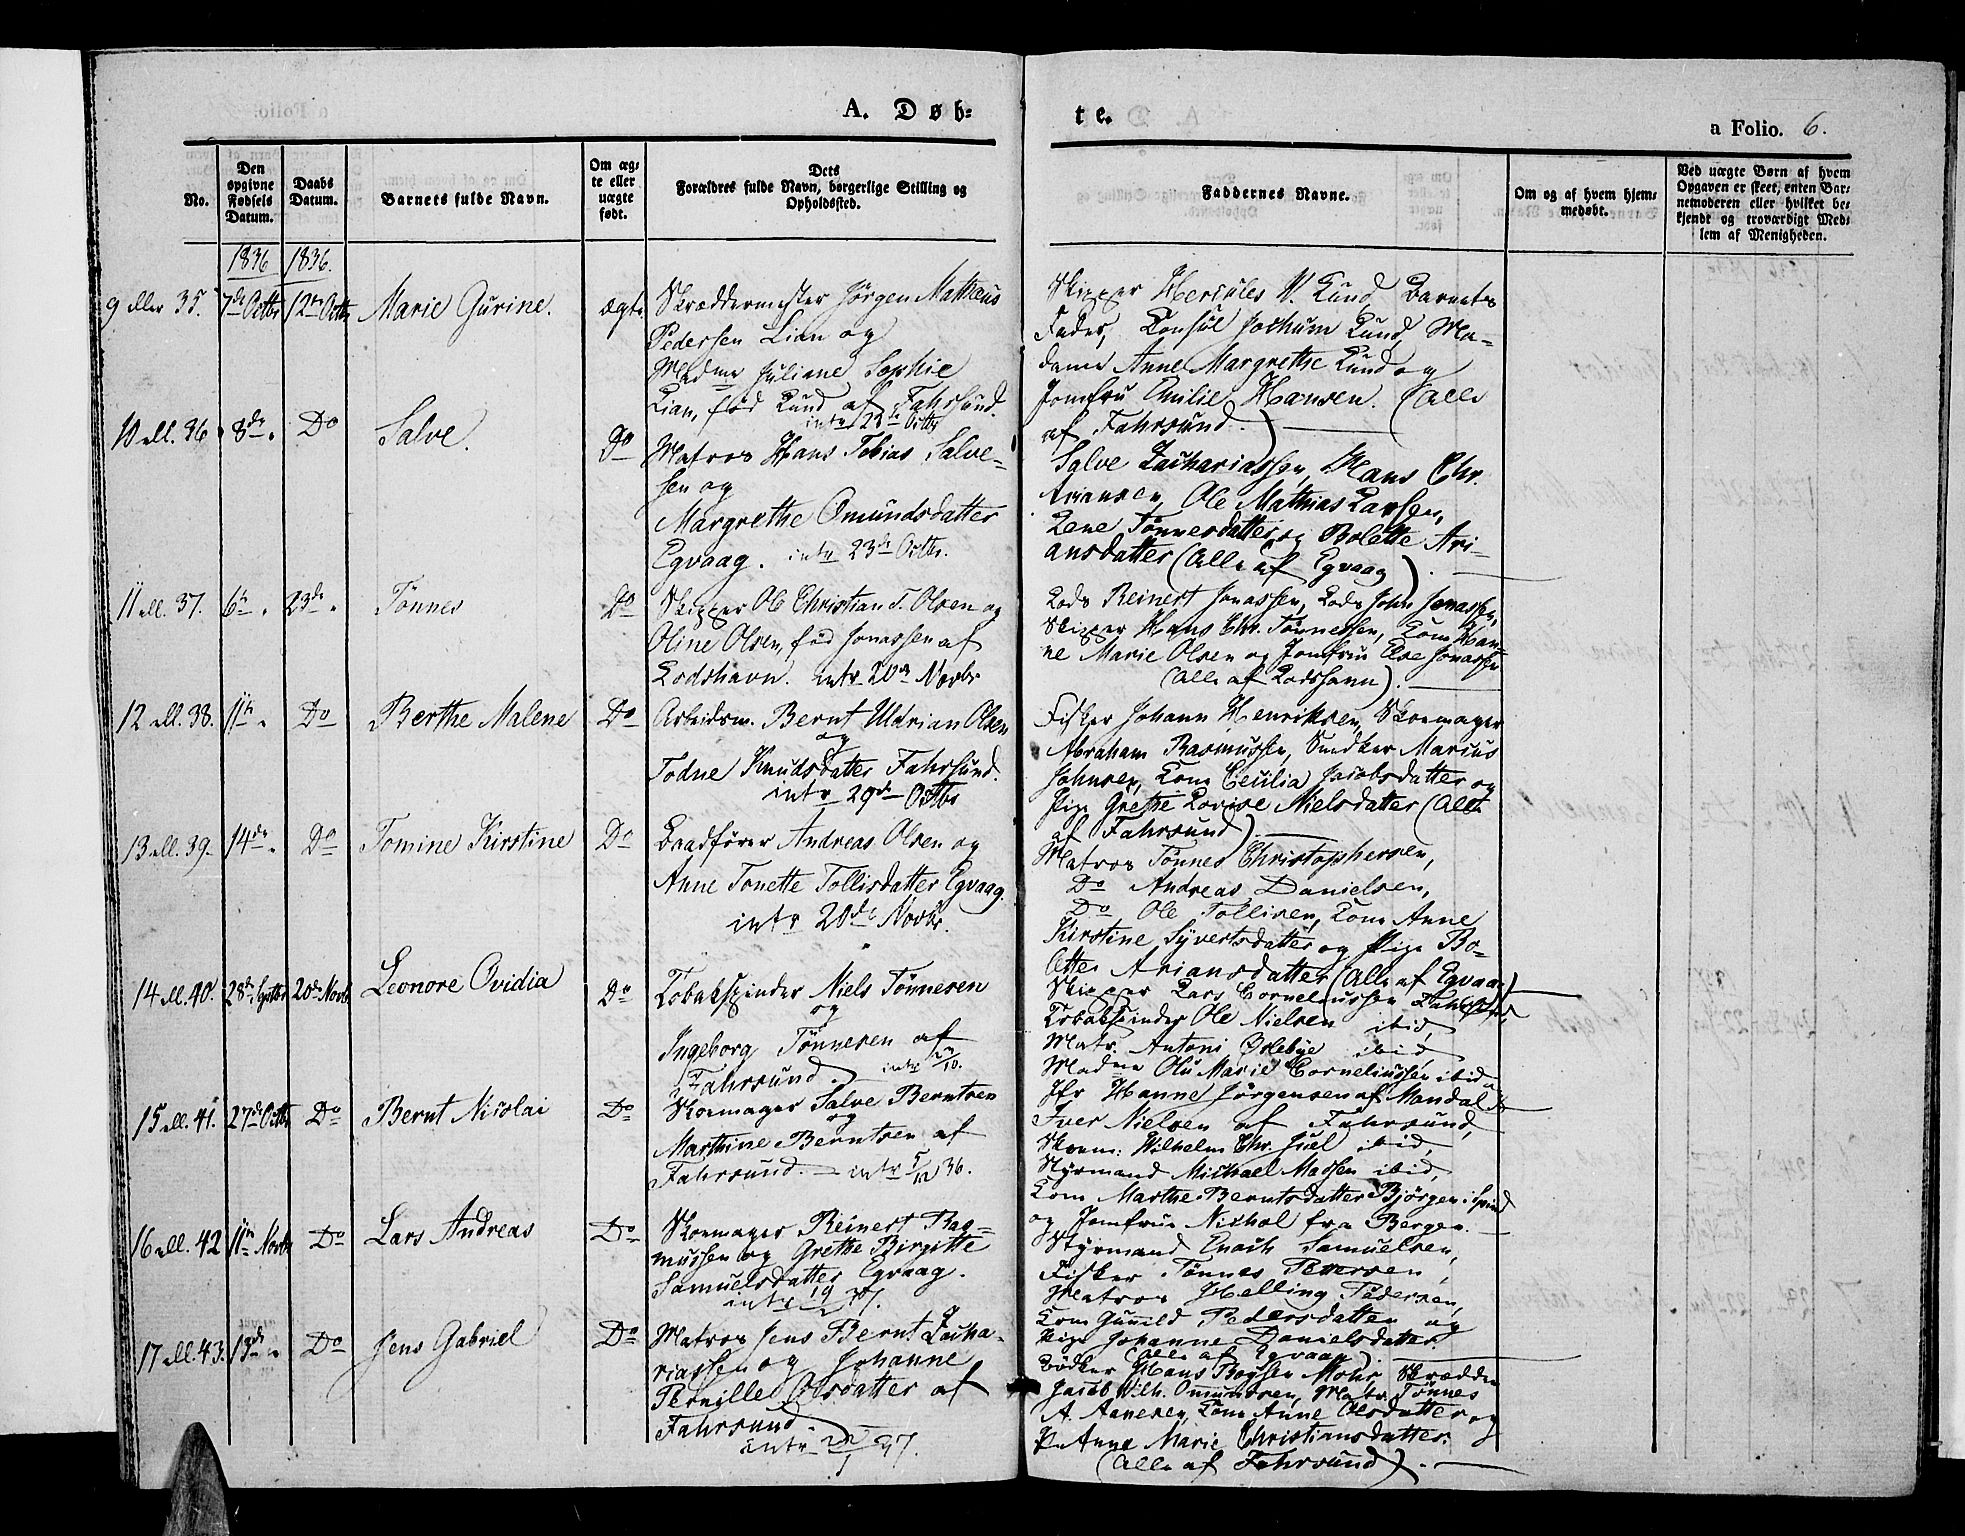 A. Døb=
te.
a Folio. 6.
No.
Den opgivne Fødsels Datum.
Daabs Datum.
Barnets fulde Navn.
Om ægte eller uægte født.
Dets Forældres fulde Navn, borgerlige Stilling og Opholdssted.
Faddernes Navne.
Om og af hvem hjemmedøbt.
Ved uægte Børn af hvem Opgaven er skeet, enten Barnemoderen eller hvilket bekjendt og troværdigt Medlem af Menigheden.
1836 1836.
9 eller 35. 7de Octbr 12te Octbr Marie Gurine. ægte
Skræddermester Jörgen Mathæus
Pedersen Lian og
Madme Juliane Sophie
Lian, fød Lund af Fahrsund.
intr 23de Octbr
Skipper Hercules W. Lund, Barnets
Fader, Consul Jochum Lund, Ma-
dame Anne Margrethe Lund og
Jomfru Emilie Hansen. (Alle
af Fahrsund.)
10 ell. 36 8de Do Salve. Do
Matros Hans Tobias Salve-
sen og
Margrethe Omundsdatter
Egvaag. intr 23de Octbr.
Salve Zachariassen, Hans Chr.
Ariansen, Ole Mathias Larsen,
Lene Tönnesdatter og Bolette Ari-
ansdatter (Alle af Egvaag).
11 ell. 37. 6te 23de Tönnes Do
Skipper Ole Christian T. Olsen og
Oline Olsen, fød Jonassen af
Lodshavn. intr 20de Novbr
Lods Reinert Jonassen, Lods John Jonassen,
Skipper Hans Chr. Tönnessen, Kone Han-
ne Marie Olsen og Jomfru Else Jonassen
(Alle af Lodshavn).
12 ell. 38. 11te Do Berthe Malene Do
Arbeidsm. Bernt Uldrian Olsen
og
Todne Knudsdatter Fahrsund.
intr 29de Octbr
Fisker Johann Henriksen, Skoemager
Abraham Rasmussen, Snedker Marcus
Johnsen, Kone Cecilia Jacobsdatter og
Pige Grethe Lovise Nielsdatter (Alle
af Fahrsund).
13 ell. 39. 14de Do Tomine Kirstine Do
Baadförer Andreas Olsen og
Anne Tonette Tollisdatter Egvaag.
intr 20de Novbr.
Matros Tönnes Christophersen,
Do Andreas Danielsen,
Do Ole Tollisen, Kone Anne
Kirstine Syvertsdatter og Pige Bo-
lette Ariansdatter (Alle af Egvaag)
14 ell. 40. 28de Septbr 20de Novbr Leonore Ovidia Do
Tobakspinder Niels Tönnesen
og
Ingeborg Tönnesen af
Fahrsund. intr 23/10.
Skipper Lars Corneliussen Fahrsund,
Tobakspinder Ole Nielsen ibid,
Matr. Antoni Oslebye ibid,
Madme Olu Marie Corneliussen ibid
Jfr Hanne Jörgensen af Mandal
15 ell. 41. 27de Octbr Do Bernt Nicolai Do
Skoemager Salve Berntsen
og
Marthine Berntsen af
Fahrsund. intr 5/12 36.
Iver Nielsen af Fahrsund,
Skoem: Wilhelm Chr. Juel ibid,
Styrmand Michael Massen ibid,
Kone Marthe Berntsdatter Bjørgen i Spind
og Jomfrue Nichol fra Bergen.
16 ell. 42 11te Novbr Do Lars Andreas Do
Skoemager Reinert Ras-
mussen og Grethe Birgitte
Samuelsdatter Egvaag.
Styrmand Enoch Samuelsen,
Fisker Tönnes Pettersen,
Matros Helling Pedersen,
Kone Gunild Pedersdatter og
Pige Johanne Danielsdatter.
(Alle af Egvaag).
17 ell. 43. 13de Do Jens Gabriel Do
Matros Jens Bernt Zacha-
riassen og Johanne
Pernille Olsdatter af
Fahrsund
Bödker Hans Boysen Mohr, Skrædder
Jacob Wilh. Omundsen, Matr. Tönnes
A. Aanesen, Kone Anne Olsdatter og
P. Anne Marie Christiansdatter.
(Alle af Fahrsund).